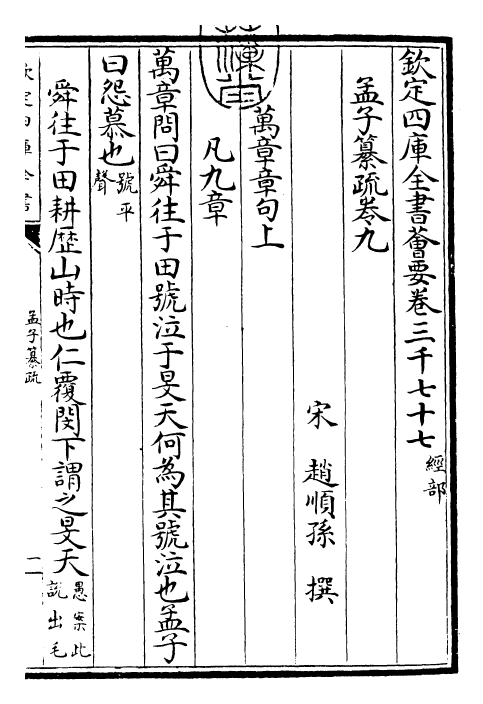 欽定四庫全書薈要卷三千七十七 經部
孟子纂疏卷九
宋 趙順孫 撰
萬章章句上
凡九章
萬章問曰舜往于田號泣于旻天何為其號泣也孟子
曰怨慕也 號平聲
舜往于田耕歴山時也仁覆閔下謂之旻天 愚案此說出毛
欽定四庫全書
孟子纂疏
一